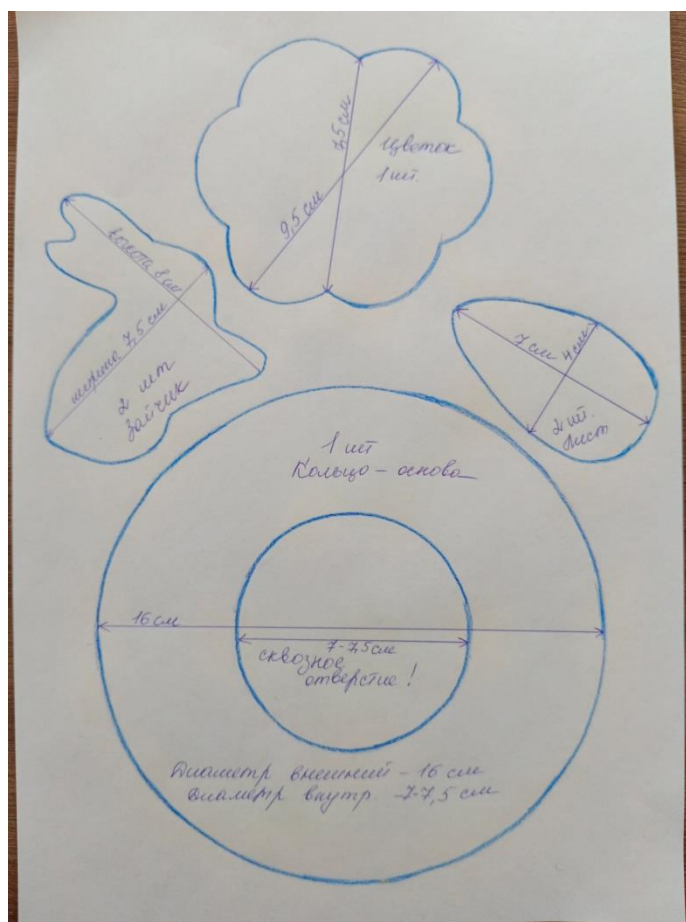 7,5 см
9,5 см
Цветок
1 шт.
высота 8 см
ширина 7,5 см
2 шт
Зайчик
7 см
4 см
2 шт.
Лист
1 шт
Кольцо - основа
16 см
7-7,5 см
сквозное
отверстие!
Диаметр внешний - 16 см
Диаметр внутр. 7-7,5 см